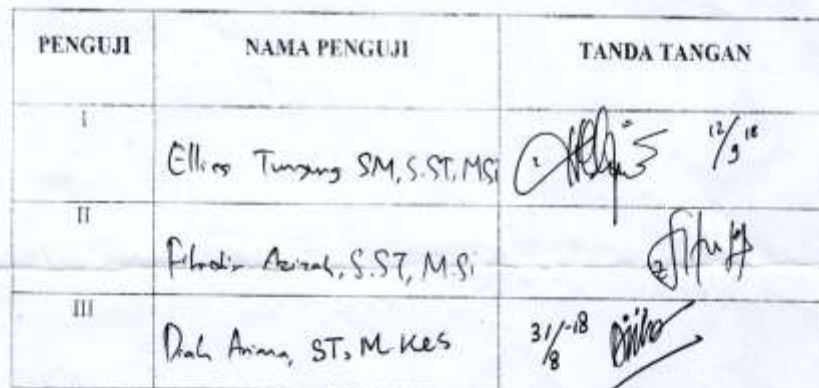 PENGUJI NAMA PENGUJI TANDA TANGAN
I Ellies Tunjung SM, S.ST, MSi 12/9 18
II Azizah, S.ST, M.Si
III Diah Ariana, ST, M.Kes 31/8 -18